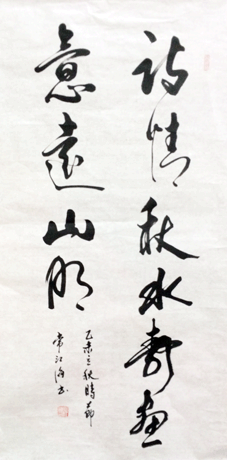 诗情秋水静画
意远山明
乙未立秋時節
常江海书